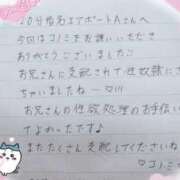 20分指名エアポートAさんへ
今回はコノミをお誘いいただき
ありがとうございました♡
お兄さんに支配されて性奴隷に
ちゃいましたね…♡///
お兄さんの性欲処理のお手伝い
てよかったです♪
またたくさん支配してくださいね
♡コノミ